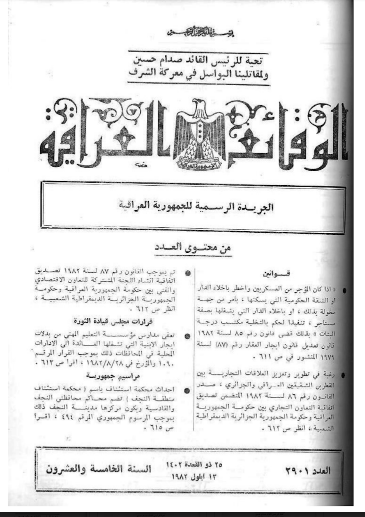 بسم الله الرحمن الرحيم
تحية للرئيس القائد صدام حسين
ولمقاتلينا البواسل في معركة الشرف
الوقائع العراقية
الجريدة الرسمية للجمهورية العراقية
من محتوى العدد
قوانين
اذا كان المؤجر من العسكريين واخطر باخلاء الدار
او الشقة الحكومية التي يسكنها بأمر من جهة
مخولة بذلك ، او باخلاء الدار التي يشغلها بصفة
مستأجر ، تنفيذا لحكم بالتخلية مكتسب درجة
البتات ، بذلك قضى قانون رقم ٨٥ لسنة ١٩٨٢
قانون تعديل قانون ايجار العقار رقم (٨٧) لسنة
١٩٧٩ المنشور في ص ٦١١ .
رغبة في تطوير وتعزيز العلاقات التجارية بين
القطرين الشقيقين العراقي والجزائري ، صدر
القانون رقم ٨٦ لسنة ١٩٨٢ المتضمن تصديق
اتفاقية التعاون التجاري بين حكومة الجمهورية
العراقية وحكومة الجمهورية الجزائرية الديمقراطية
الشعبية ، انظر ص ٦١٢ .
تم بموجب القانون رقم ٨٧ لسنة ١٩٨٢ تصديق
اتفاقية انشاء اللجنة المشتركة للتعاون الاقتصادي
والفني بين حكومة الجمهورية العراقية وحكومة
الجمهورية الجزائرية الديمقراطية الشعبية ،
انظر ص ٦١٢ .
قرارات مجلس قيادة الثورة
تعفى مدارس مؤسسة التعليم المهني من بدلات
ايجار الابنية التي تشغلها العائدة الى الادارات
المحلية في المحافظات ذلك بموجب القرار المرقم
١٠٦٠ والمؤرخ في ١٩٨٢/٨/٢٨ ، اقرأ ص ٦١٣ .
مراسيم جمهورية
احداث محكمة استئناف باسم ( محكمة استئناف
منطقة النجف ) تضم محاكم محافظتي النجف
والقادسية ويكون مركزها مدينة النجف ذلك
بموجب المرسوم الجمهوري المرقم ٤٩٤ ، اقرأ
ص ٦١٥ .
العدد ٢٩٠١
٢٥ ذو القعدة ١٤٠٢
١٣ ايلول ١٩٨٢
السنة الخامسة والعشرون